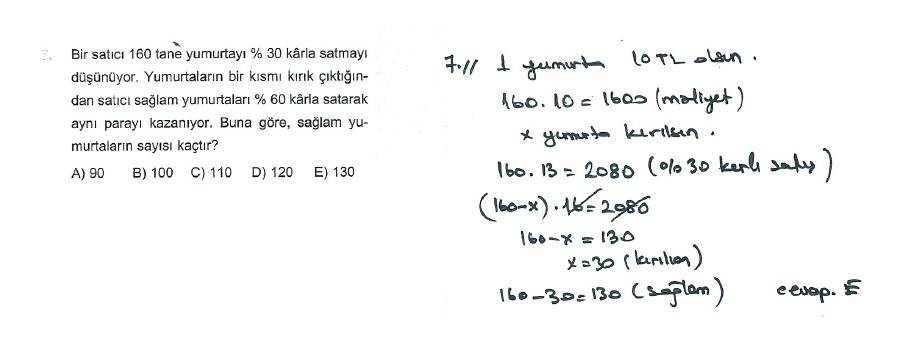 7. Bir satıcı 160 tane yumurtayı % 30 kârla satmayı
düşünüyor. Yumurtaların bir kısmı kırık çıktığın-
dan satıcı sağlam yumurtaları % 60 kârla satarak
aynı parayı kazanıyor. Buna göre, sağlam yu-
murtaların sayısı kaçtır?
A) 90 B) 100 C) 110 D) 120 E) 130
7.// 1 yumurta 10 TL olsun.
160. 10 = 1600 (maliyet)
x yumurta kırılsın.
160. 13 = 2080 (%30 karlı satış)
(160-x). 16 = 2080
160-x = 130
x = 30 (kırılan)
160-30 = 130 (sağlam) cevap. E